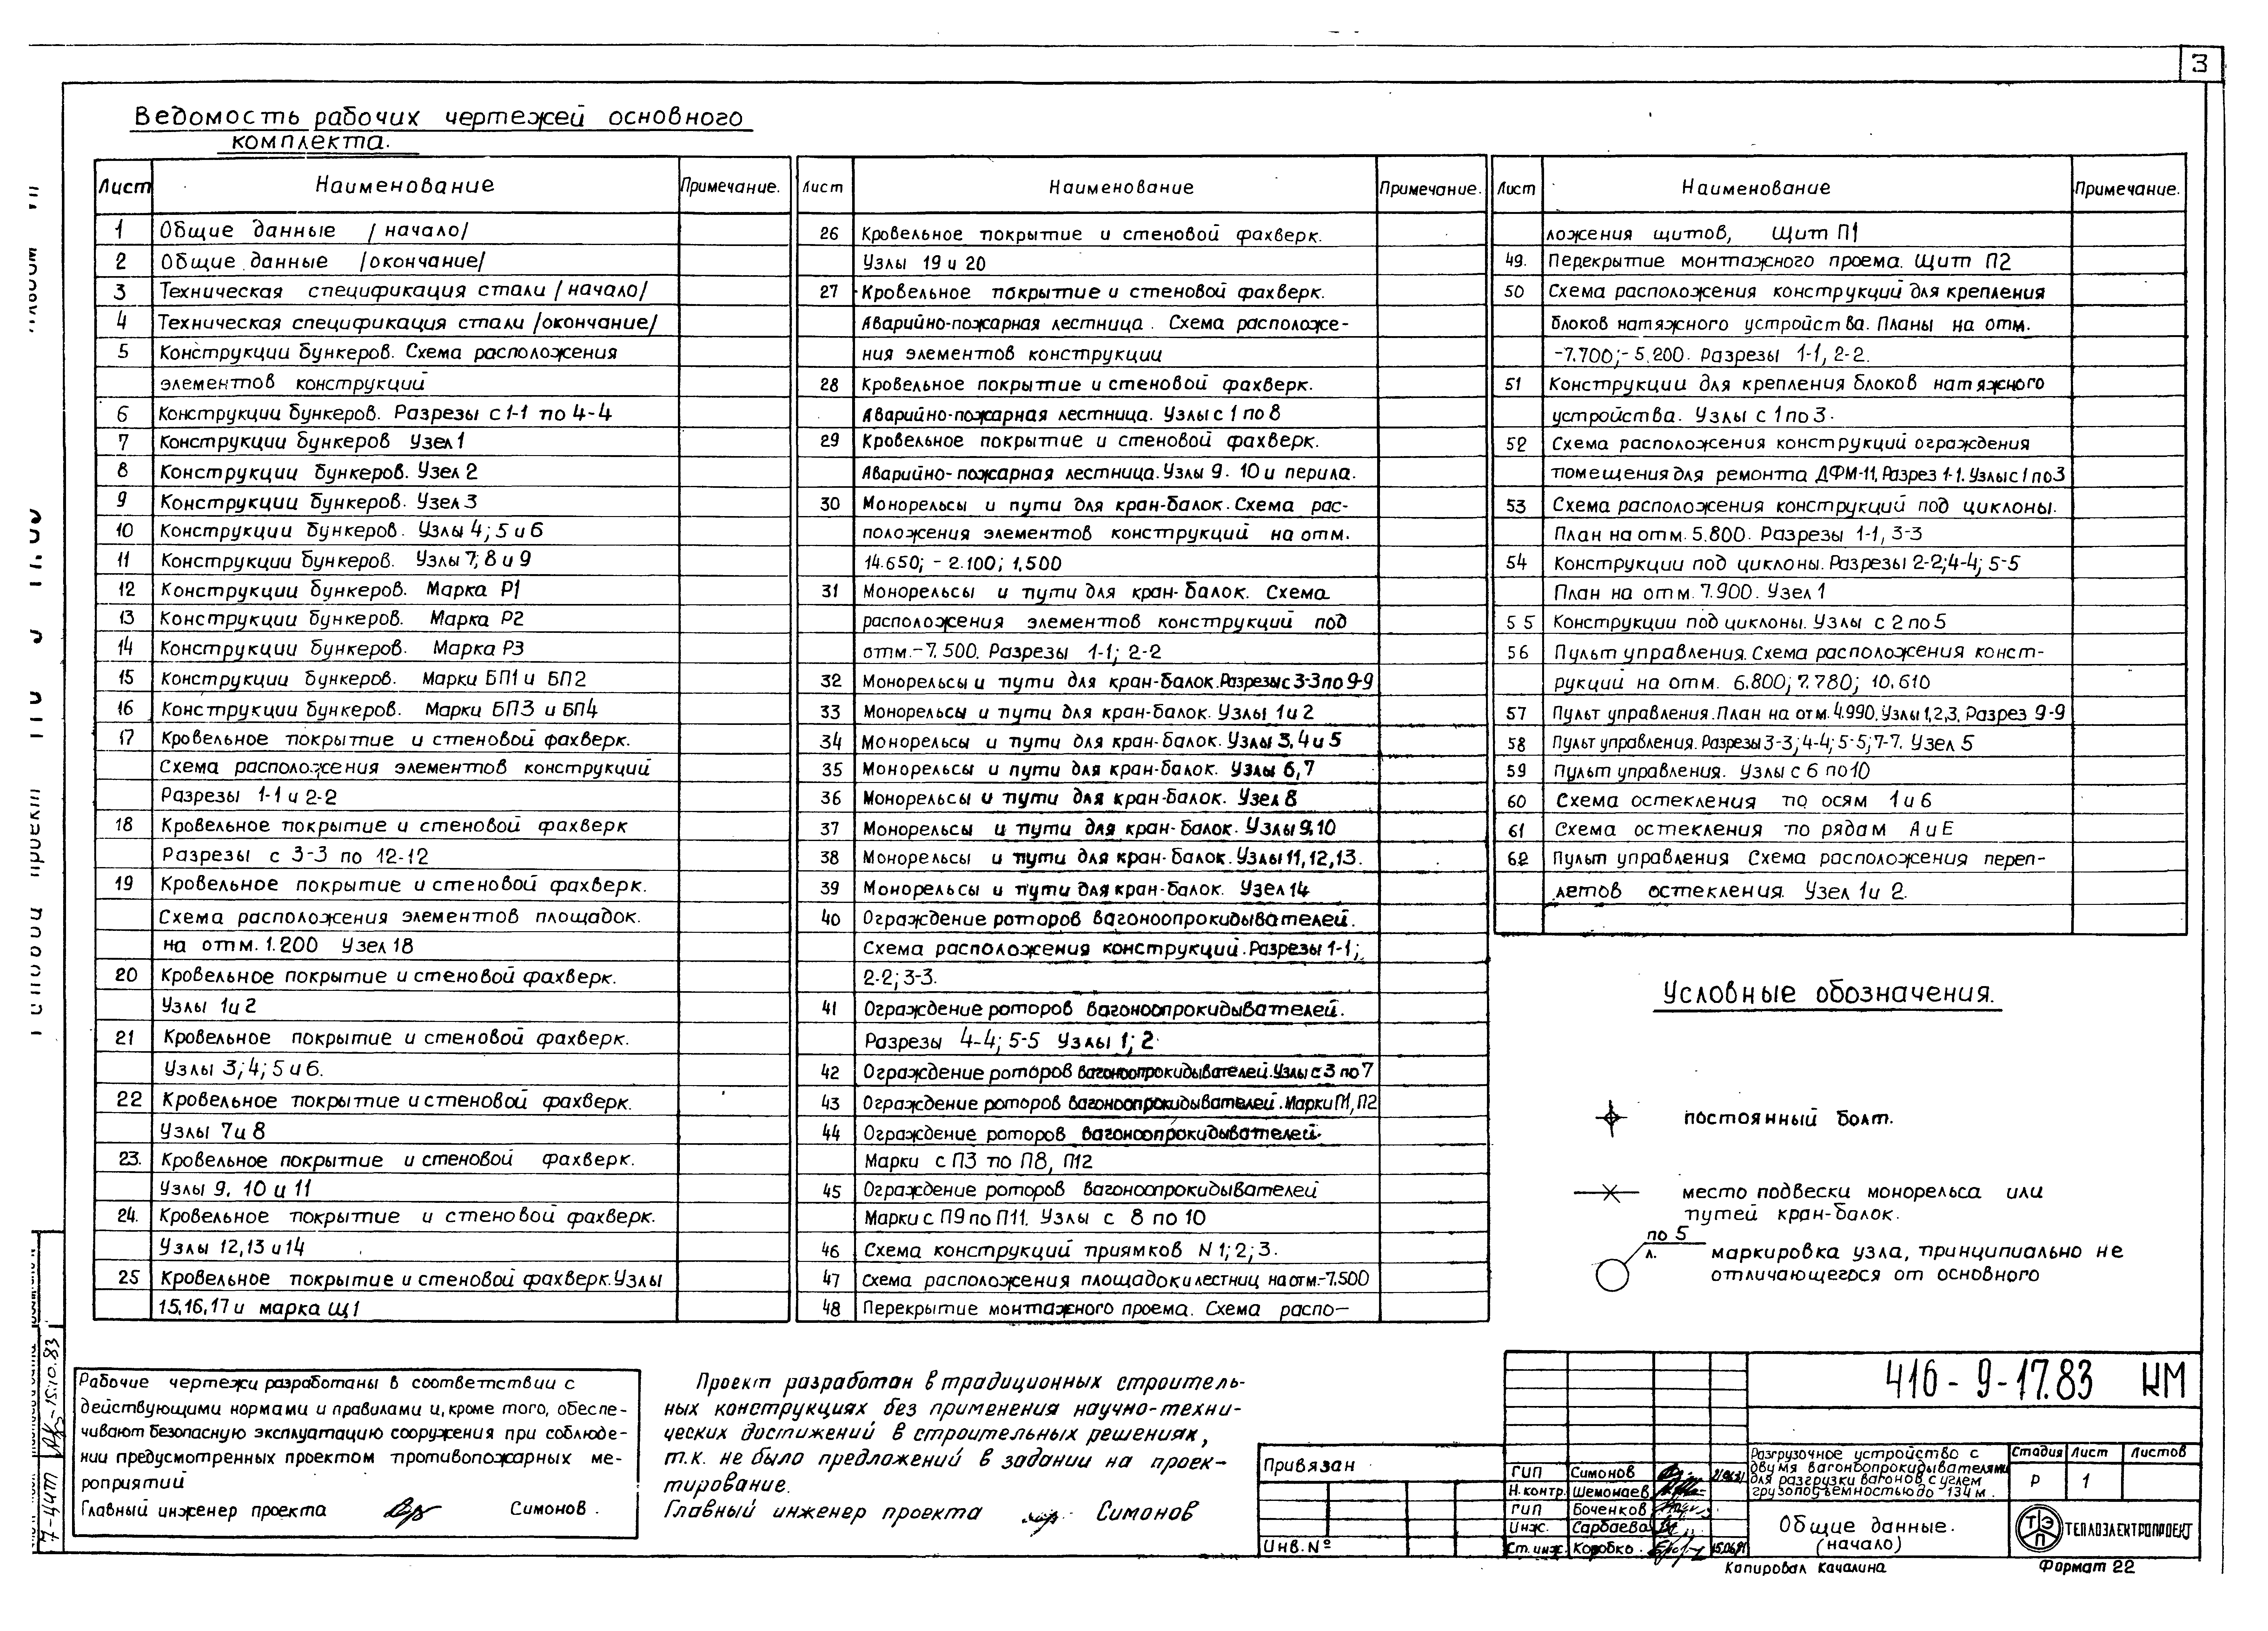 3
Ведомость рабочих чертежей основного
комплекта.
Лист Наименование Примечание.
1 Общие данные /начало/
2 Общие данные /окончание/
3 Техническая спецификация стали /начало/
4 Техническая спецификация стали /окончание/
5 Конструкции бункеров. Схема расположения
элементов конструкций
6 Конструкции бункеров. Разрезы с 1-1 по 4-4
7 Конструкции бункеров Узел 1
8 Конструкции бункеров. Узел 2
9 Конструкции бункеров. Узел 3
10 Конструкции бункеров. Узлы 4; 5 и 6
11 Конструкции бункеров. Узлы 7; 8 и 9
12 Конструкции бункеров. Марка Р1
13 Конструкции бункеров. Марка Р2
14 Конструкции бункеров. Марка Р3
15 Конструкции бункеров. Марки БП1 и БП2
16 Конструкции бункеров. Марки БП3 и БП4
17 Кровельное покрытие и стеновой фахверк.
Схема расположения элементов конструкций
Разрезы 1-1 и 2-2
18 Кровельное покрытие и стеновой фахверк
Разрезы с 3-3 по 12-12
19 Кровельное покрытие и стеновой фахверк.
Схема расположения элементов площадок.
на отм. 1.200 Узел 18
20 Кровельное покрытие и стеновой фахверк.
Узлы 1 и 2
21 Кровельное покрытие и стеновой фахверк.
Узлы 3; 4; 5 и 6.
22 Кровельное покрытие и стеновой фахверк.
Узлы 7 и 8
23. Кровельное покрытие и стеновой фахверк.
Узлы 9, 10 и 11
24. Кровельное покрытие и стеновой фахверк.
Узлы 12, 13 и 14
25 Кровельное покрытие и стеновой фахверк. Узлы
15, 16, 17 и марка Щ1
Лист Наименование Примечание.
26 Кровельное покрытие и стеновой фахверк.
Узлы 19 и 20
27 Кровельное покрытие и стеновой фахверк.
Аварийно-пожарная лестница. Схема расположе-
ния элементов конструкции
28 Кровельное покрытие и стеновой фахверк.
Аварийно-пожарная лестница. Узлы с 1 по 8
29 Кровельное покрытие и стеновой фахверк.
Аварийно-пожарная лестница. Узлы 9. 10 и перила.
30 Монорельсы и пути для кран-балок. Схема рас-
положения элементов конструкций на отм.
14.650; -2.100; 1,500
31 Монорельсы и пути для кран-балок. Схема
расположения элементов конструкций под
отм.-7.500. Разрезы 1-1; 2-2
32 Монорельсы и пути для кран-балок. Разрезы с 3-3 по 9-9
33 Монорельсы и пути для кран-балок. Узлы 1 и 2
34 Монорельсы и пути для кран-балок. Узлы 3, 4 и 5
35 Монорельсы и пути для кран-балок. Узлы 6, 7
36 Монорельсы и пути для кран-балок. Узел 8
37 Монорельсы и пути для кран-балок. Узлы 9, 10
38 Монорельсы и пути для кран-балок. Узлы 11, 12, 13.
39 Монорельсы и пути для кран-балок. Узел 14
40 Ограждение роторов вагоноопрокидывателей.
Схема расположения конструкций. Разрезы 1-1;
2-2; 3-3.
41 Ограждение роторов вагоноопрокидывателей.
Разрезы 4-4; 5-5 Узлы 1; 2
42 Ограждение роторов вагоноопрокидывателей. Узлы с 3 по 7
43 Ограждение роторов вагоноопрокидывателей. Марки П1, П2
44 Ограждение роторов вагоноопрокидывателей.
Марки с П3 по П8, П12
45 Ограждение роторов вагоноопрокидывателей
Марки с П9 по П11. Узлы с 8 по 10
46 Схема конструкций приямков N 1; 2; 3.
47 Схема расположения площадок и лестниц на отм.-7.500
48 Перекрытие монтажного проема. Схема распо-
Лист Наименование Примечание.
ложения щитов, Щит П1
49. Перекрытие монтажного проема. Щит П2
50 Схема расположения конструкций для крепления
блоков натяжного устройства. Планы на отм.
-7.700; -5.200. Разрезы 1-1, 2-2.
51 Конструкции для крепления блоков натяжного
устройства. Узлы с 1 по 3.
52 Схема расположения конструкций ограждения
помещения для ремонта ДФМ-11. Разрез 1-1. Узлы с 1 по 3
53 Схема расположения конструкций под циклоны.
План на отм. 5.800. Разрезы 1-1, 3-3
54 Конструкции под циклоны. Разрезы 2-2; 4-4; 5-5
План на отм. 7.900. Узел 1
55 Конструкции под циклоны. Узлы с 2 по 5
56 Пульт управления. Схема расположения конст-
рукций на отм. 6.800; 7.780; 10.610
57 Пульт управления. План на отм. 4.990. Узлы 1, 2, 3. Разрез 9-9
58 Пульт управления. Разрезы 3-3; 4-4; 5-5; 7-7. Узел 5
59 Пульт управления. Узлы с 6 по 10
60 Схема остекления по осям 1 и 6
61 Схема остекления по рядам А и Е
62 Пульт управления Схема расположения переп-
летов остекления. Узел 1 и 2.
Условные обозначения.
постоянный болт.
место подвески монорельса или
путей кран-балок.
по 5
л.
маркировка узла, принципиально не
отличающегося от основного
Рабочие чертежи разработаны в соответствии с
действующими нормами и правилами и, кроме того, обеспе-
чивают безопасную эксплуатацию сооружения при соблюде-
нии предусмотренных проектом противопожарных ме-
роприятий
Главный инженер проекта Симонов.
Проект разработан в традиционных строитель-
ных конструкциях без применения научно-техни-
ческих достижений в строительных решениях,
т.к. не было предложений в задании на проек-
тирование.
Главный инженер проекта Симонов
Привязан
Инв. №
ГИП Симонов
Н.контр. Шемонаев
ГИП Боченков
Инж. Сарбаева
Ст. инж. Коробко
416-9-17.83 КМ
Разгрузочное устройство с
двумя вагоноопрокидывателями
для разгрузки вагонов с углем
грузоподъемностью до 134 м.
Стадия Лист Листов
Р 1
Общие данные.
(начало)
ТЭП ТЕПЛОЭЛЕКТРОПРОЕКТ
Копировал Качалина
Формат 22